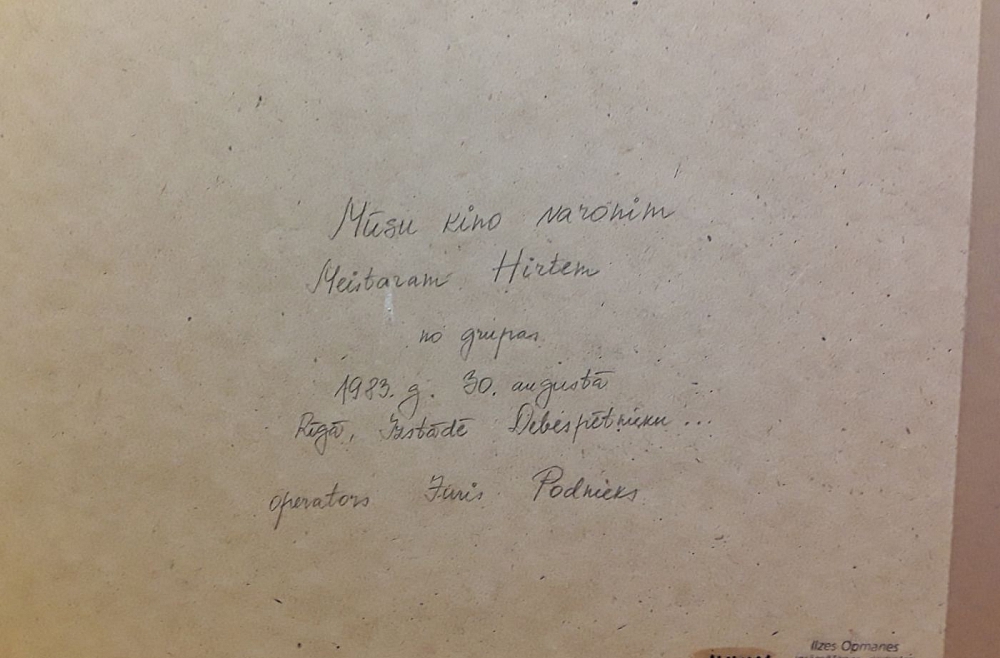 Mūsu kino varonim
Meistaram Hirtem
no grupas
1983. g. 30. augustā
Rīgā, Izstādē Debespētnieku...
operators Juris Podnieks
Ilzes Opmanes